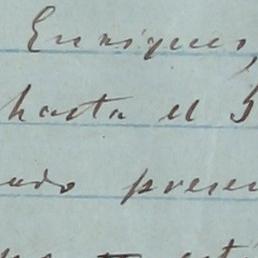 Enriques,
hasta el 5
uado presen